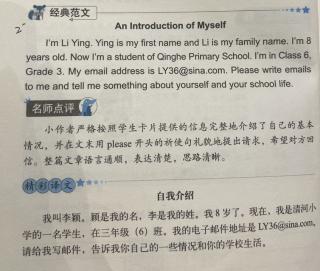 经典范文
2
An Introduction of Myself
I'm Li Ying. Ying is my first name and Li is my family name. I'm 8
years old. Now I'm a student of Qinghe Primary School. I'm in Class 6,
Grade 3. My email address is LY36@sina.com. Please write emails
to me and tell me something about yourself and your school life.
名师点评
小作者严格按照学生卡片提供的信息完整地介绍了自己的基本
情况，并在文末用please开头的祈使句礼貌地提出请求，希望对方回
信。整篇文章语言通顺，表达清楚，思路清晰。
精彩译文
自我介绍
我叫李颖。颖是我的名，李是我的姓。我8岁了。现在，我是清河小
学的一名学生，在三年级（6）班。我的电子邮件地址是LY36@sina.com。
请给我写邮件，告诉我你自己的一些情况和你的学校生活。